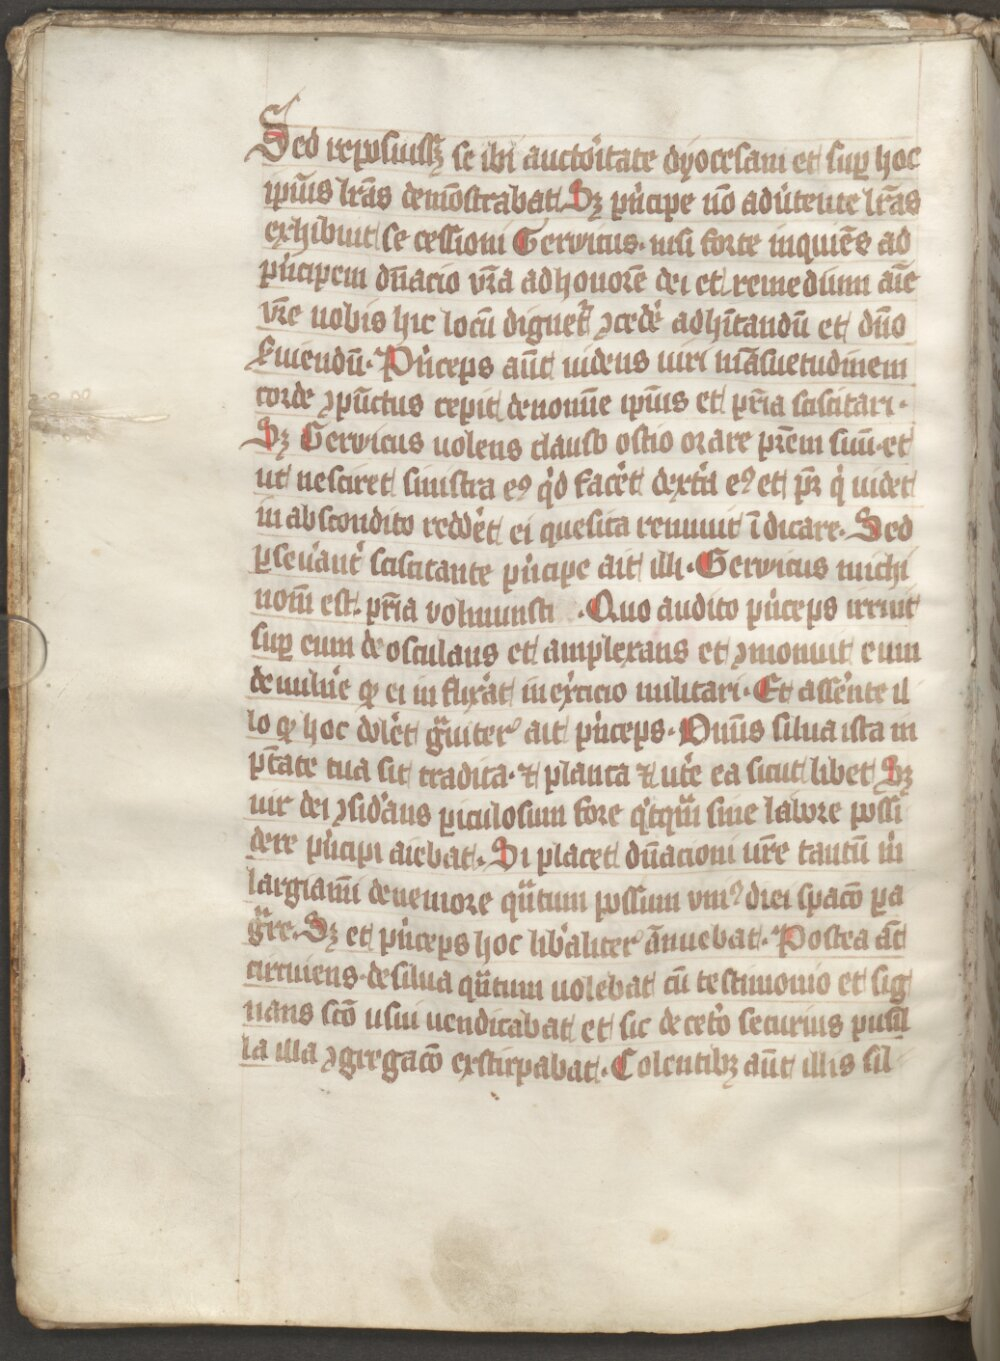 Sed reposuissꝫ se ibi auctoͥtate dyocesani et suꝑ hoc
ip̄ius lr̄as demōstrabat Sꝫ pͥncipe nō adūtente lr̄as
exhibuit se cessioni Gerwicus· nisi forte inquiēs ad
pͥncipem dn̄acio vr̄a ad honorē dei et remedium aīe
vr̄e nobis hic locū dignet᷑ ꝯcedē adhītandū et dn̄o
s̄uiendū· Pͥnceps aūt uidens uiri māsuetudinem
corde ꝯpūctus cepit de nomīe ip̄ius et pr̄ia sciscitari·
Sꝫ Gerwicus uolens clauso ostio orare pr̄em suū· et
ut nesciret sinistra eꝰ qͥd facēt dextͣ eꝰ et pr̄ qͥ uidet
in abscondito reddēt ei quesita rennuit īdicare· Sed
ꝑseūant᷑ sciscitante pͥncipe ait illi· Gerwicus michi
nom̄ est· pr̄ia volmunsti · Quo audito pͥnceps irruit
suꝑ eum deosculans et amplexans et ꝯmonuit eum
de uuln̄e qͩ ei inflix̄at in ex̄cicio militari· Et assēnte il
lo qͩ hoc dolēt gͣuiter ait pͥnceps· Om̄is silua ista in
ptāte tua sit tradita· ⁊ planta ⁊ utē ea sicut libet Sꝫ
uir dei ꝯsidāns ꝑiculosum fore qͥcqͣm sine labore possi
dere pͥncipi aiebat· Si placet dn̄acioni ur̄e tantū mͥ
largiamī de nemore qͣntum possum vniꝰ diei spacō ꝑa
gͣre· Sꝫ et pͥnceps hoc lib̄aliter ānuebat· Postea aūt
circuiens· de silua qͣntum uolebat cū testimonio et sig
nans scō usui uendicabat et sic de cetō securius pusil
la illa ꝯgregacō exstirpabat· Colentibꝫ aūt illis sil